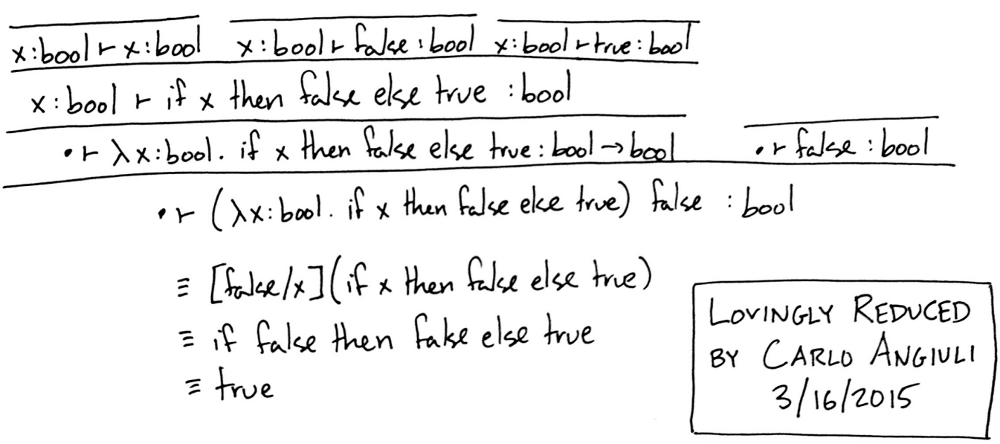 x:bool ⊢ x:bool x:bool ⊢ false:bool x:bool ⊢ true:bool
x:bool ⊢ if x then false else true :bool
• ⊢ λx:bool. if x then false else true:bool→bool • ⊢ false:bool
• ⊢ (λx:bool. if x then false else true) false :bool
≡ [false/x](if x then false else true)
≡ if false then false else true
≡ true
LOVINGLY REDUCED
BY CARLO ANGIULI
3/16/2015